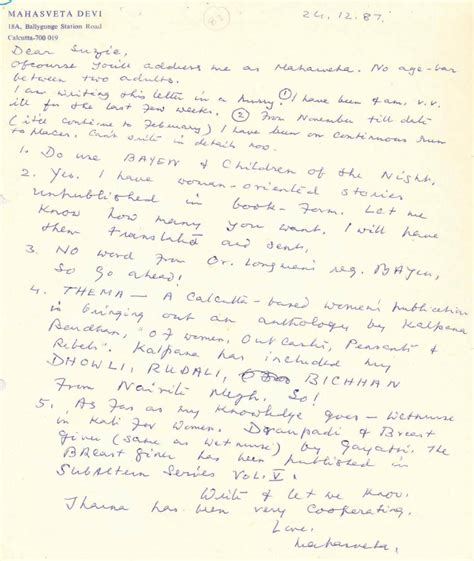 MAHASVETA DEVI
18A, Ballygunge Station Road
Calcutta-700 019
24.12.87.
Dear Suzie,
Ofcourse you'll address me as Mahasweta. No age-bar
between two adults.
I am writing this letter in a hurry. ① I have been & am v.v.
ill for the last few weeks. ② From November till date
(it'll continue to February) I have been on continuous run
to places. Can't write in details now.
1. Do use BAYEN & Children of the Night.
2. Yes. I have woman-oriented stories
unpublished in book-form. Let me
know how many you want. I will have
them translated and sent.
3. NO word from Or. Longman's reg. BAYEN,
So go ahead!
4. THEMA — A Calcutta-based women's publication
is bringing out an anthology by Kalpana
Bardhan, "Of women, Outcasts, Peasants &
Rebels". Kalpana has included my
DHOWLI, RUDALI, BICHHAN
From Nairite Megh. So!
5. As far as my knowledge goes — Wetnurse
in Kali for Women. Draupadi & Breast
Giver (same as wetnurse) by Gayatri. The
BReast giver has been published in
SubAltern Series Vol. V.
Write & let me know.
Jharna has been very cooperating.
Love.
Mahasveta.